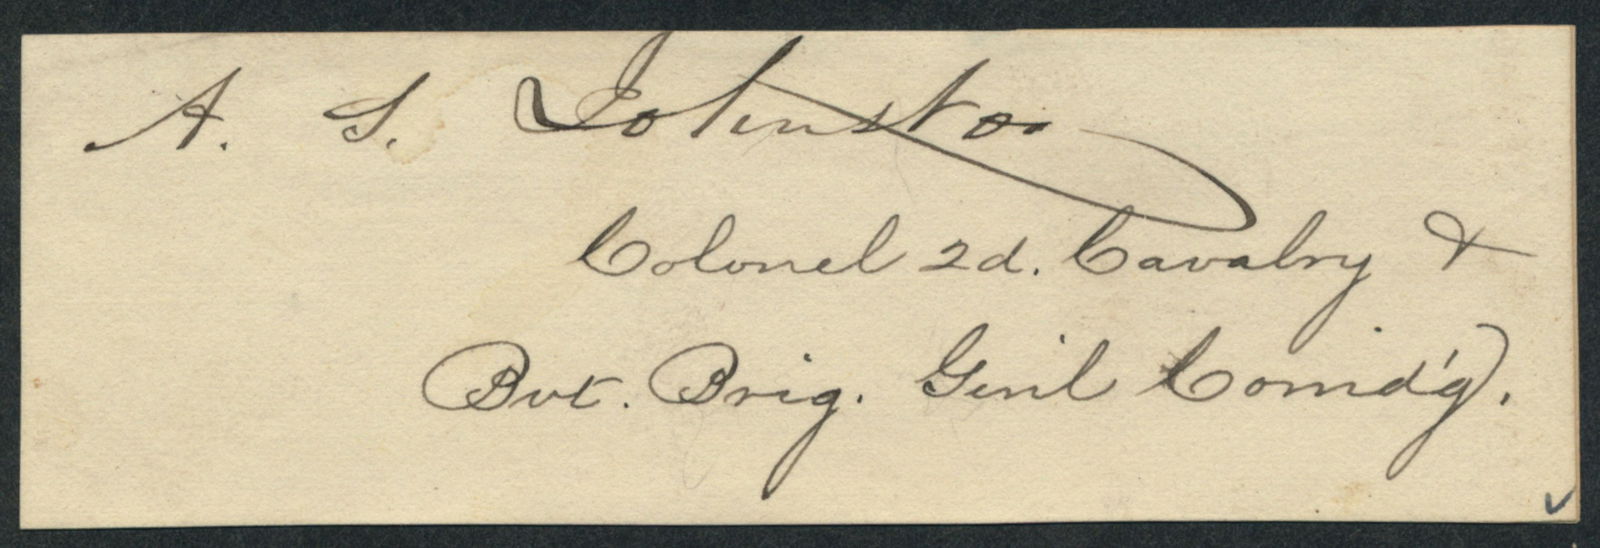 A. S. Johnston
Colonel 2d. Cavalry &
Bvt. Brig. Gen'l Comd'g.